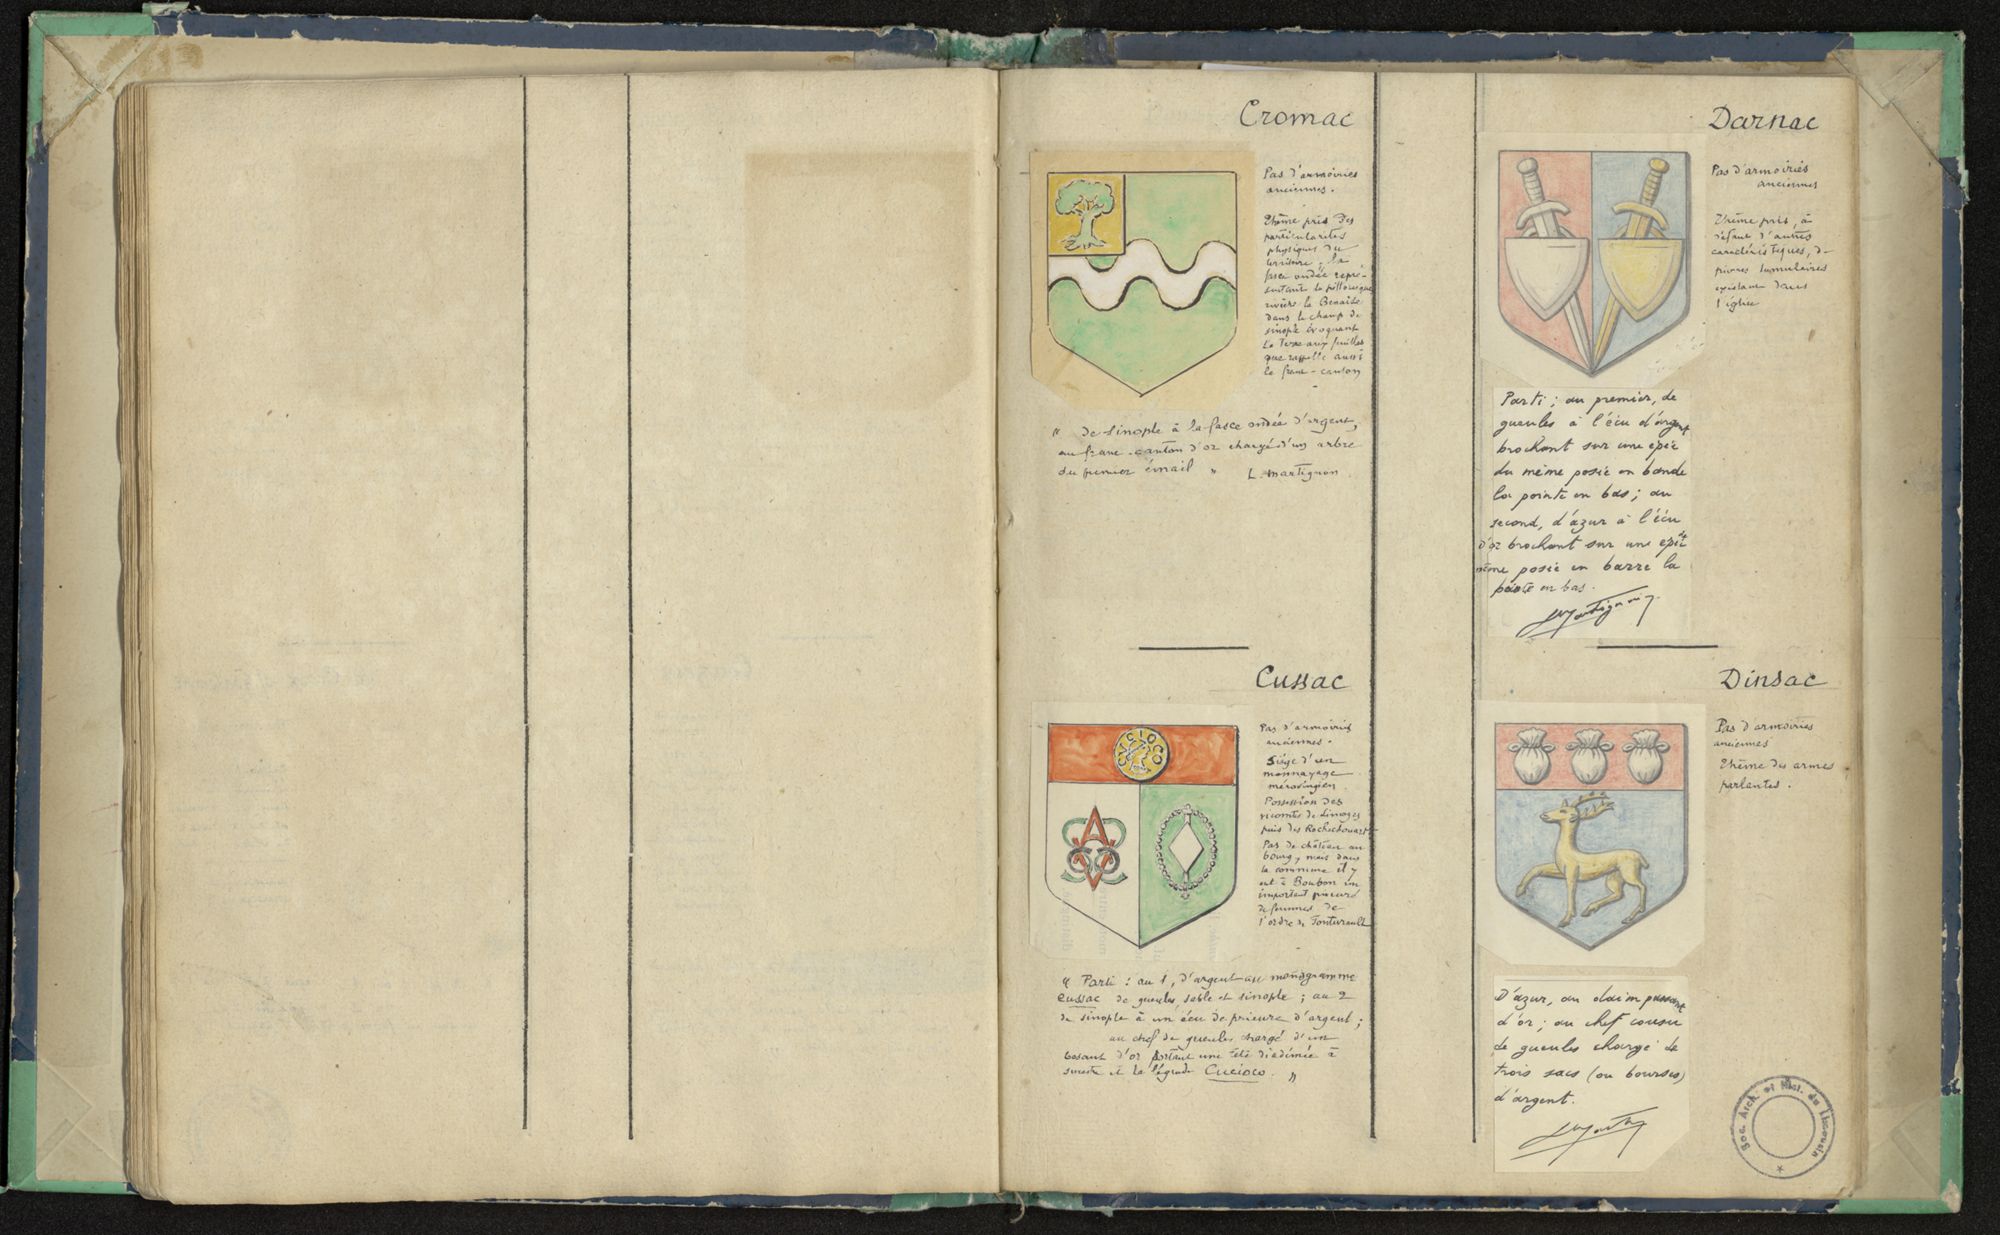 Cromac
Pas d'armoiries
anciennes.
Thème pris des
particularités
physiques du
territoire, la
fasce ondée repré-
sentant la pittoresque
rivière la Benaize
dans le champ de
sinople évoquant
la Terre aux feuilles
que rappelle aussi
le franc-canton
" de sinople à la fasce ondée d'argent,
au franc-canton d'or chargé d'un arbre
du premier émail " L. Martignon
Cussac
CVCIOCO
Pas d'armoiries
anciennes.
Siège d'un
monnayage
mérovingien
Possession des
vicomtes de Limoges
puis des Rochechouart
Pas de château au
bourg, mais dans
la commune il y
eut à Boubon un
important prieuré
de femmes de
l'ordre de Fontevrault
" Parti : au 1, d'argent au monogramme
Cussac de gueules, sable et sinople ; au 2
de sinople à un écu de prieure d'argent ;
au chef de gueules chargé d'un
besant d'or portant une tête diadémée à
senestre et la légende Cucioco. "
Darnac
Pas d'armoiries
anciennes
Thème pris, à
défaut d'autres
caractéristiques, de
pierres tumulaires
existant dans
l'église
Parti ; au premier, de
gueules à l'écu d'argent
brochant sur une épée
du même posée en bande
la pointe en bas ; au
second, d'azur à l'écu
d'or brochant sur une épée du
même posée en barre la
pointe en bas.
LMartignon
Dinsac
Pas d'armoiries
anciennes
Thème des armes
parlantes.
D'azur, au daim passant
d'or ; au chef cousu
de gueules chargé de
trois sacs (ou bourses)
d'argent.
Soc. Arch. et Hist. du Limousin